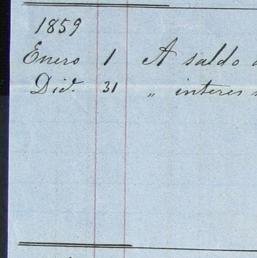 1859
Enero 1 A saldo
Dic. 31 " interes